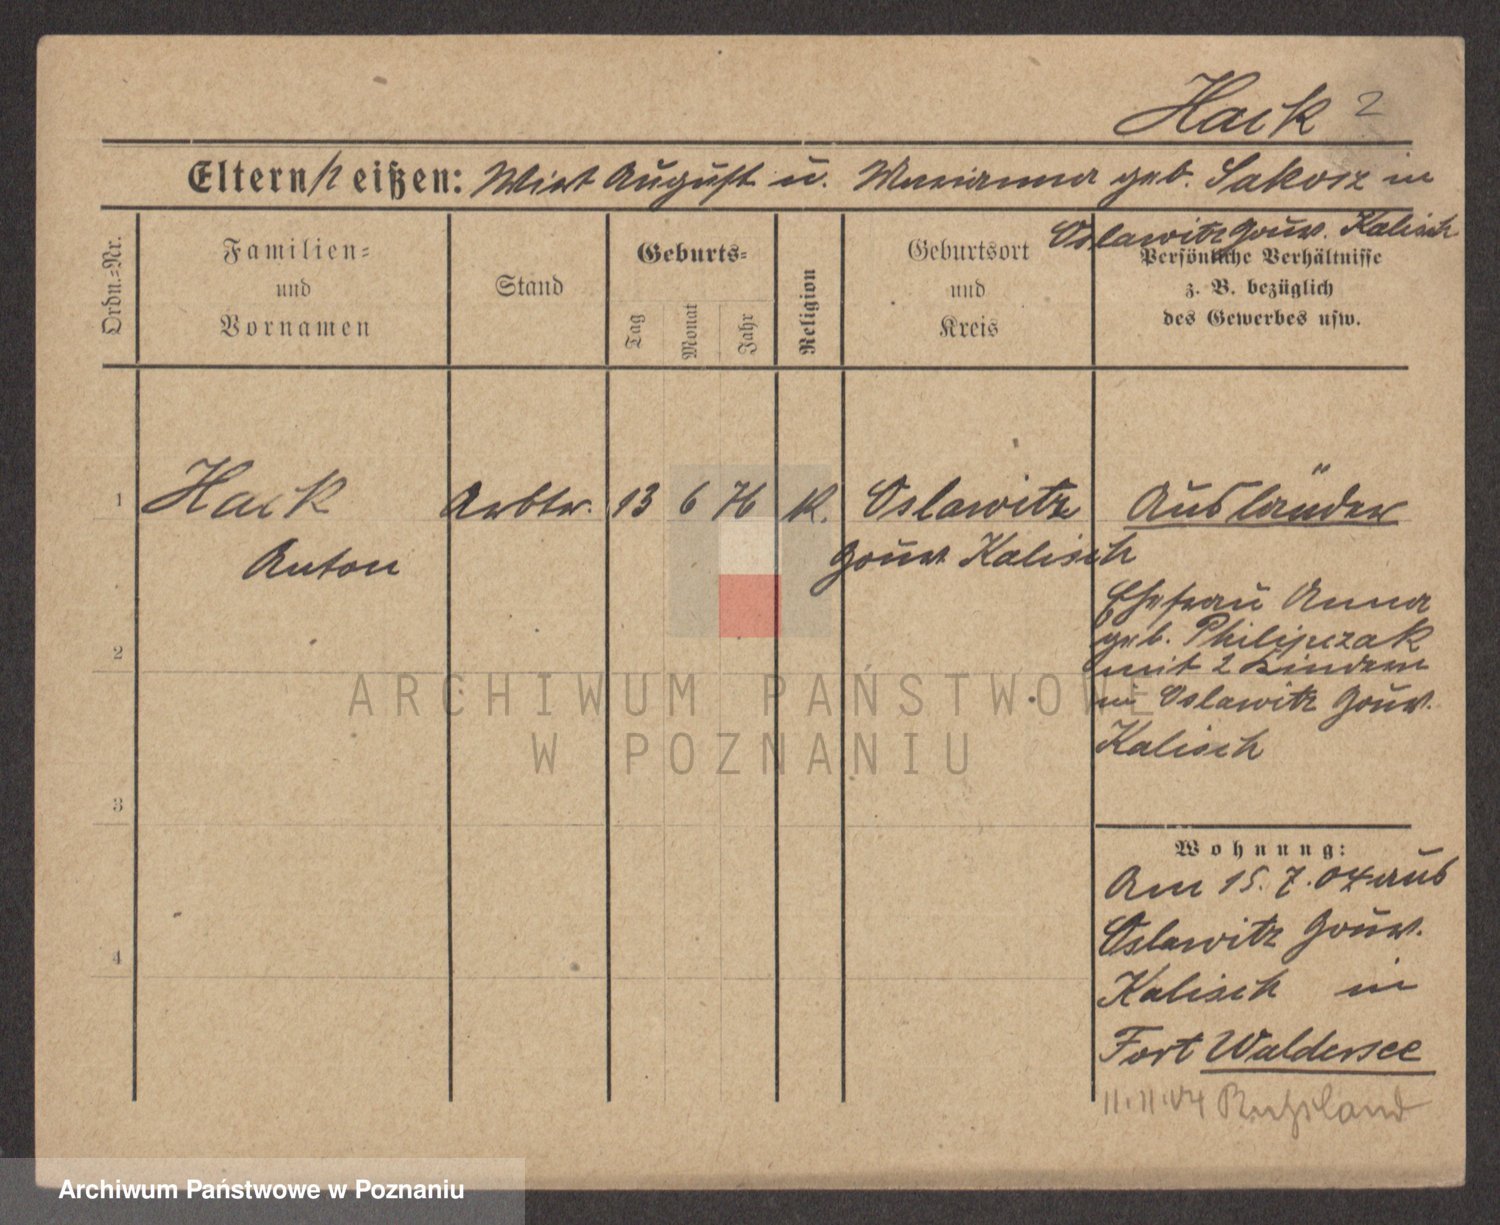 Hack 2
Eltern heißen: Wirt August u. Marianna geb. in
Oslawitz Gouv. Kalisch
Ordn.=Nr.
Familien=
und
Vornamen
Stand
Geburts=
Tag
Monat
Jahr
Religion
Geburtsort
und
Kreis
Persönliche Verhältnisse
z. B. bezüglich
des Gewerbes usw.
1 Hack Arbtr. 13 6 76 K. Oslawitz Ausländer
Anton Gouv. Kalisch
Ehefrau Anna
geb. Philipczak
2 mit 2 Kindern
in Oslawitz Gouv.
Kalisch
3
Wohnung:
Am 15. 7. 04 aus
Oslawitz Gouv.
4
Kalisch in
Fort Waldersee
11.11.04 Rußland
ARCHIWUM PAŃSTWOWE
W POZNANIU
Archiwum Państwowe w Poznaniu